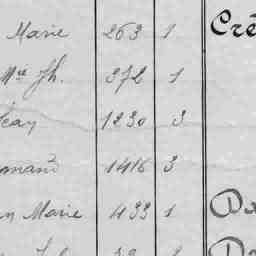 Marie 263 1 Cré
Mie Jh. 372 1
Jean 1230 3
mand 1416 3
n Marie 433 1